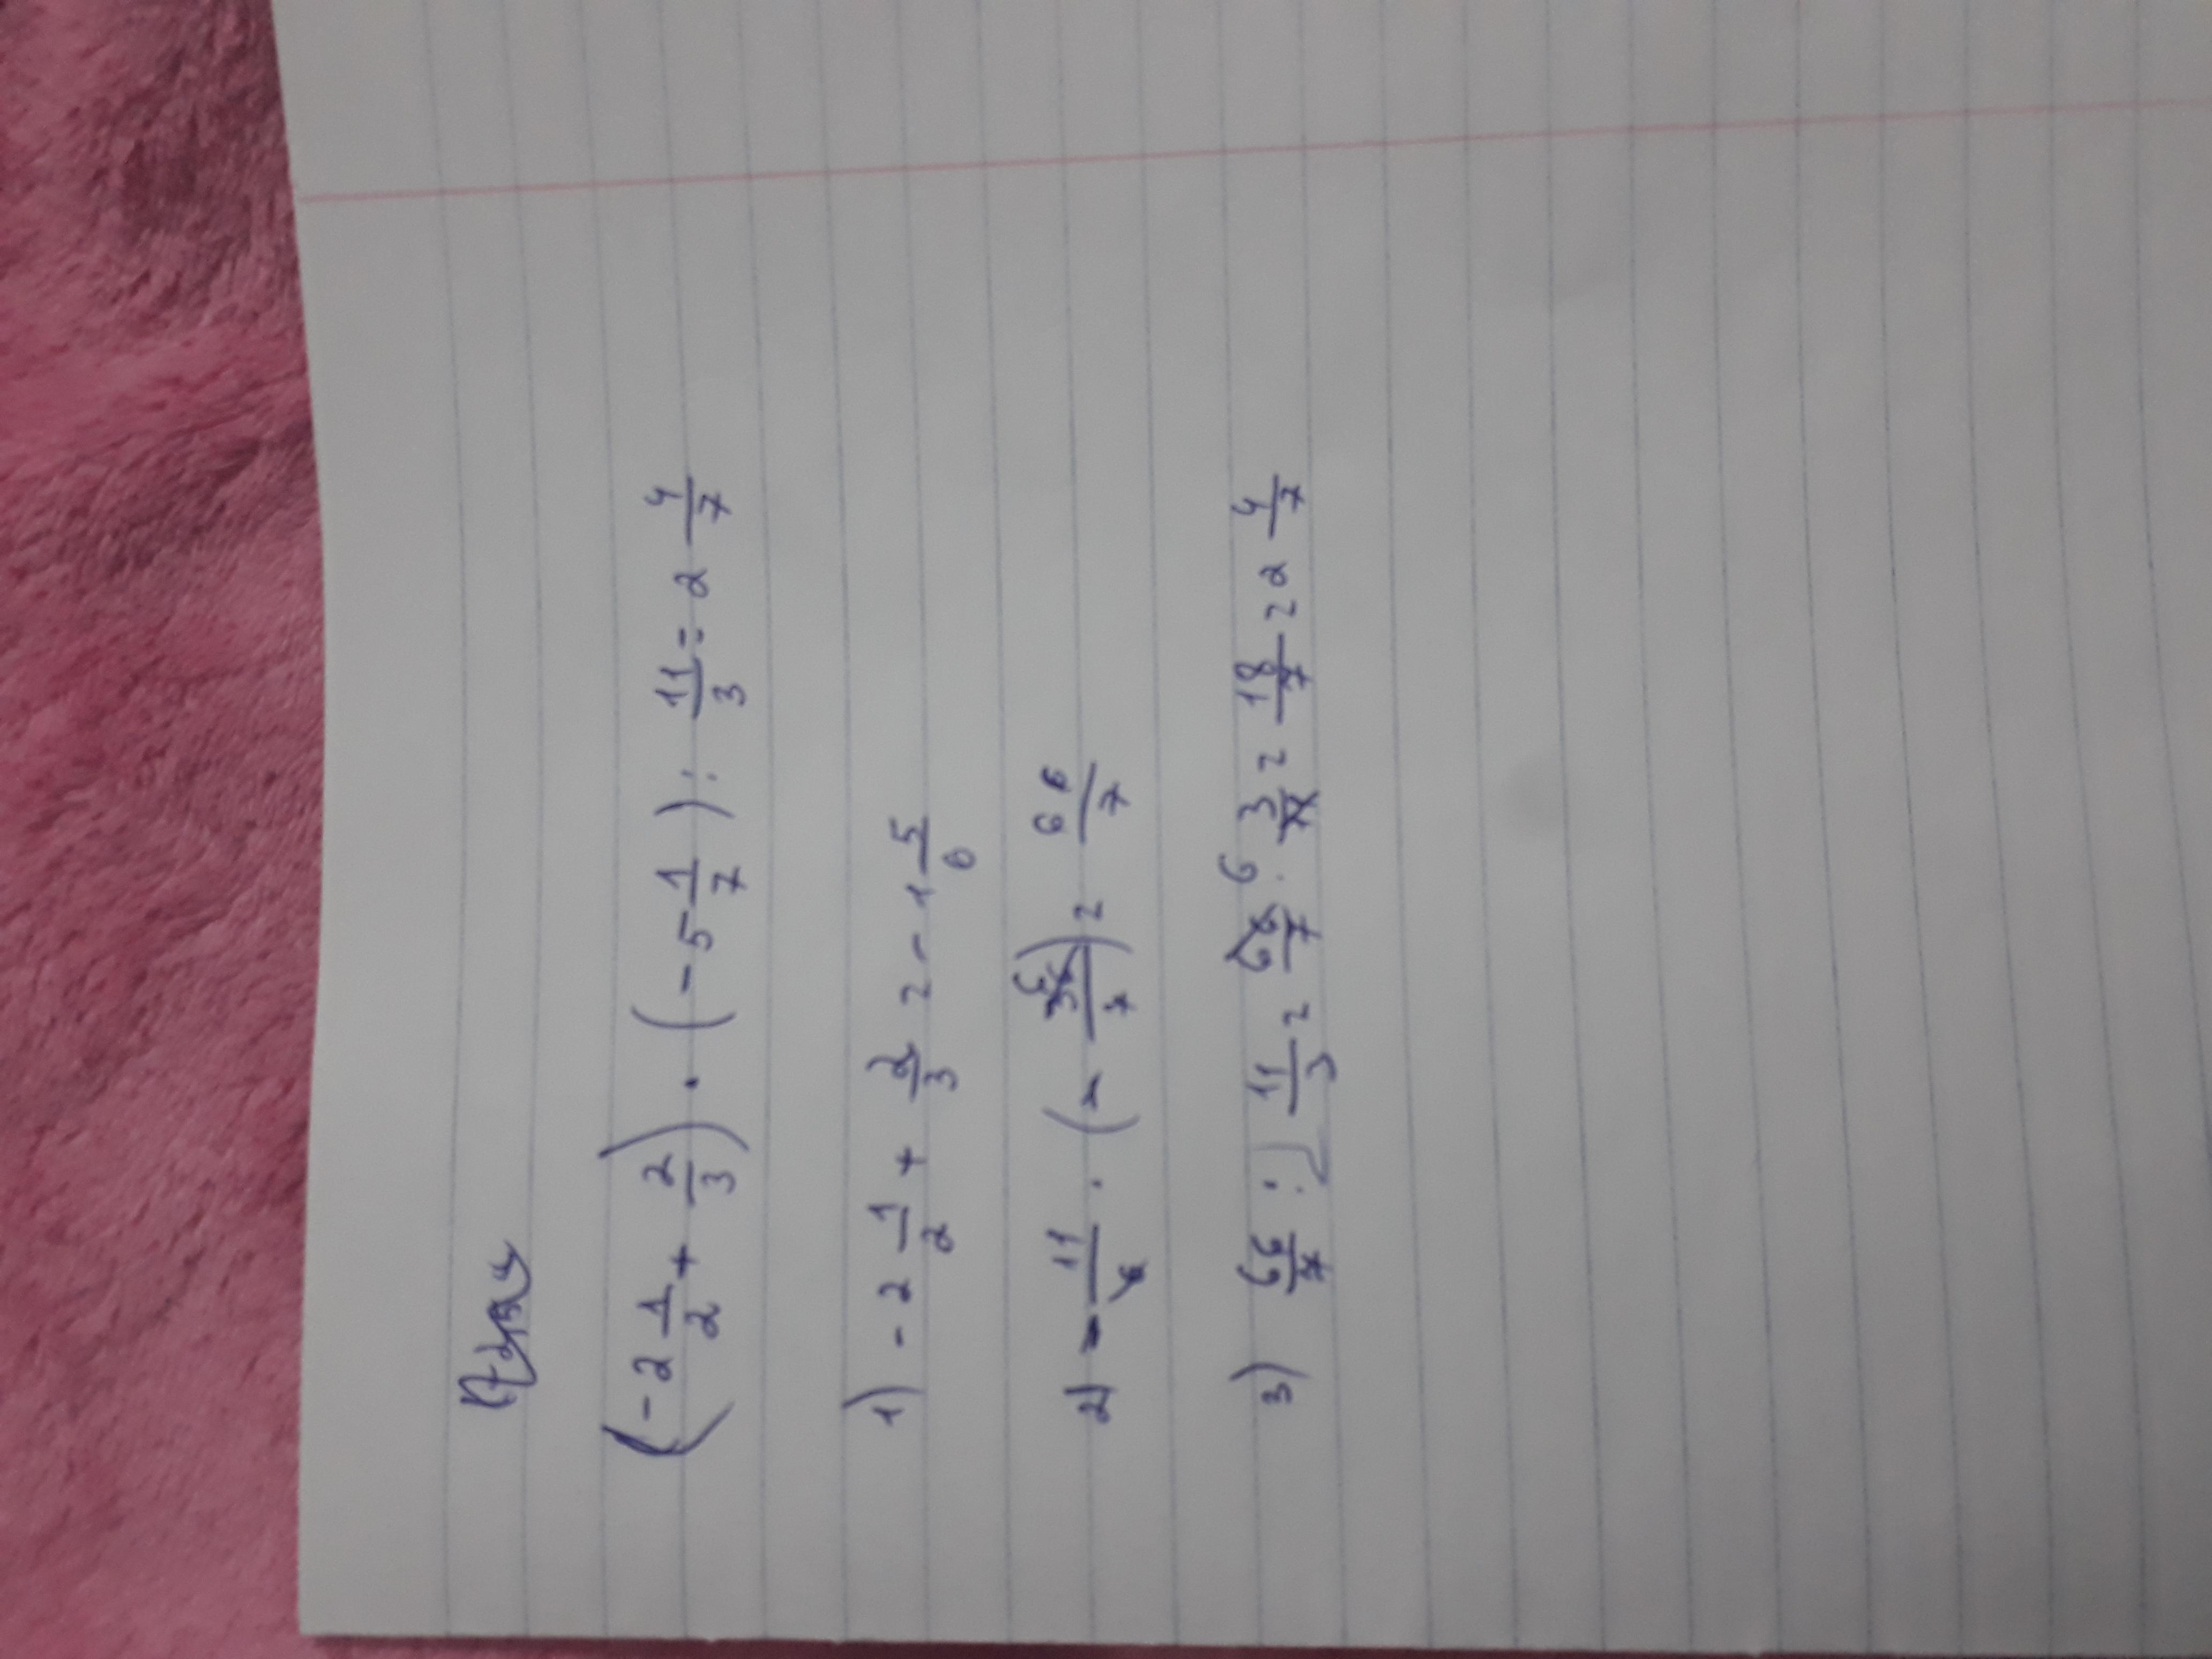 (-2 1/2 + 2/3) · (-5 1/7) : 11/3 = 2 4/7
1) -2 1/2 + 2/3 = -1 5/6
2) -11/6 · (-36/7) = 66/7
3) 66/7 : 11/3 = 66/7 · 3/11 = 18/7 = 2 4/7